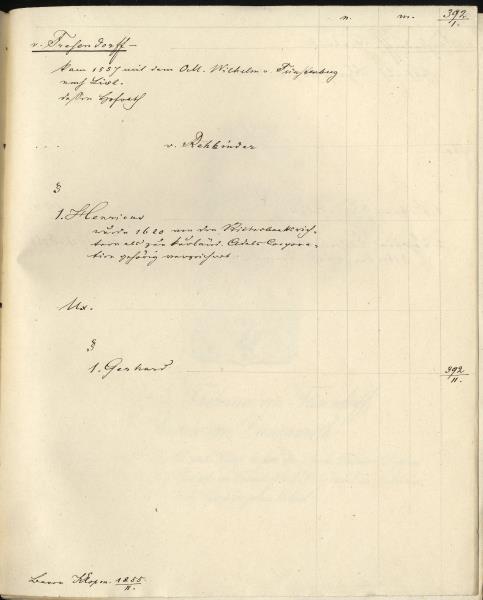 n. m. 392/I.
v. Tresendorff –
kam 1557 mit dem O.M. Wilhelm v. Fürstenberg
nach Livl.
dessen
v. Rehbinder
§
1. Henricus
wurde 1620 von den Ritterbanksrich-
tern als zur kurländ. Adels Corpora-
tion gehörig verzeichnet.
Ux.
§
1. Gerhard 392/II.
Baron 1855/II.